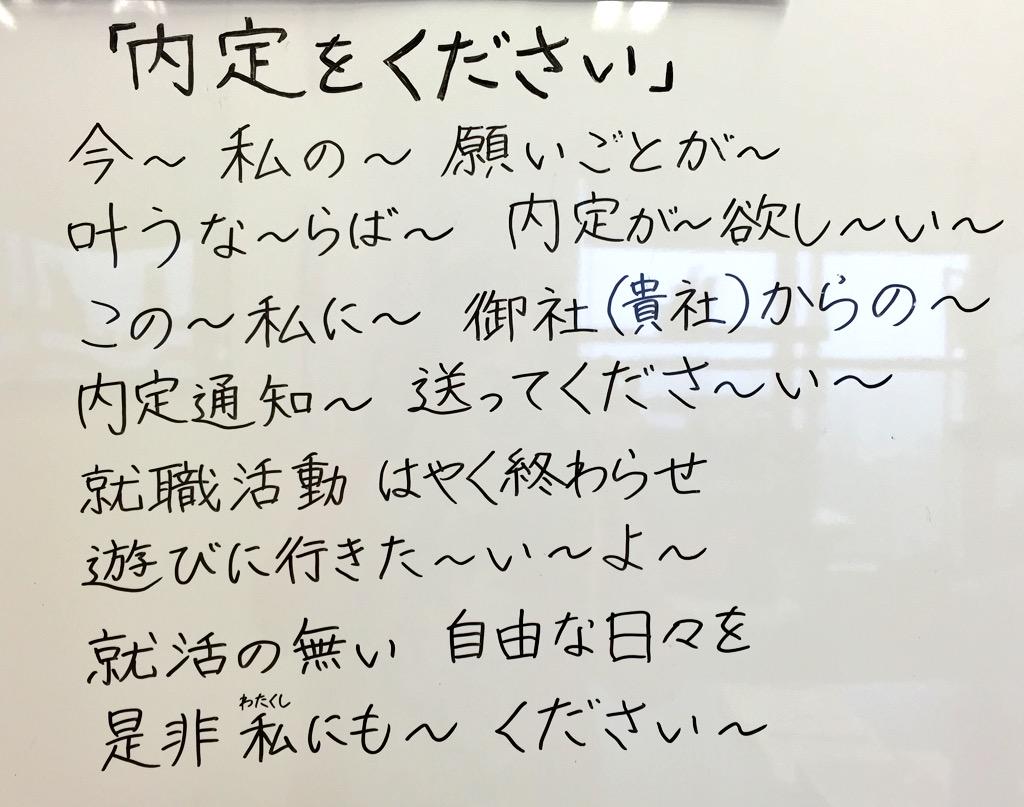 「内定をください」
今～ 私の～ 願いごとが～
叶うな～らば～ 内定が～欲し～い～
この～私に～ 御社(貴社)からの～
内定通知～ 送ってくださ～い～
就職活動 はやく終わらせ
遊びに行きた～い～よ～
就活の無い 自由な日々を
わたくし
是非 私にも～ ください～